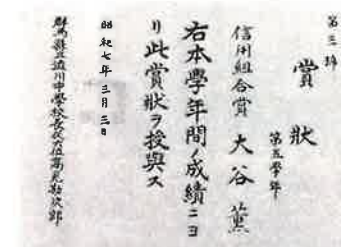 第三号
賞狀
第五學年
信用組合賞 大谷薫
右本學年間ノ成績ニヨ
リ此賞狀ヲ授與ス
昭和七年三月三日
群馬縣立澁川中學校長從六位高見勘次郎